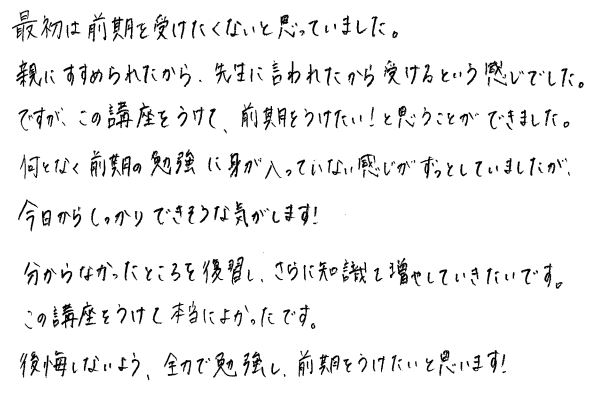 最初は前期を受けたくないと思っていました。
親にすすめられたから、先生に言われたから受けるという感じでした。
ですが、この講座をうけて、前期をうけたい！と思うことができました。
何となく前期の勉強に身が入っていない感じがずっとしていましたが、
今日からしっかりできそうな気がします！
分からなかったところを復習し、さらに知識を増やしていきたいです。
この講座をうけて本当によかったです。
後悔しないよう、全力で勉強し、前期をうけたいと思います！